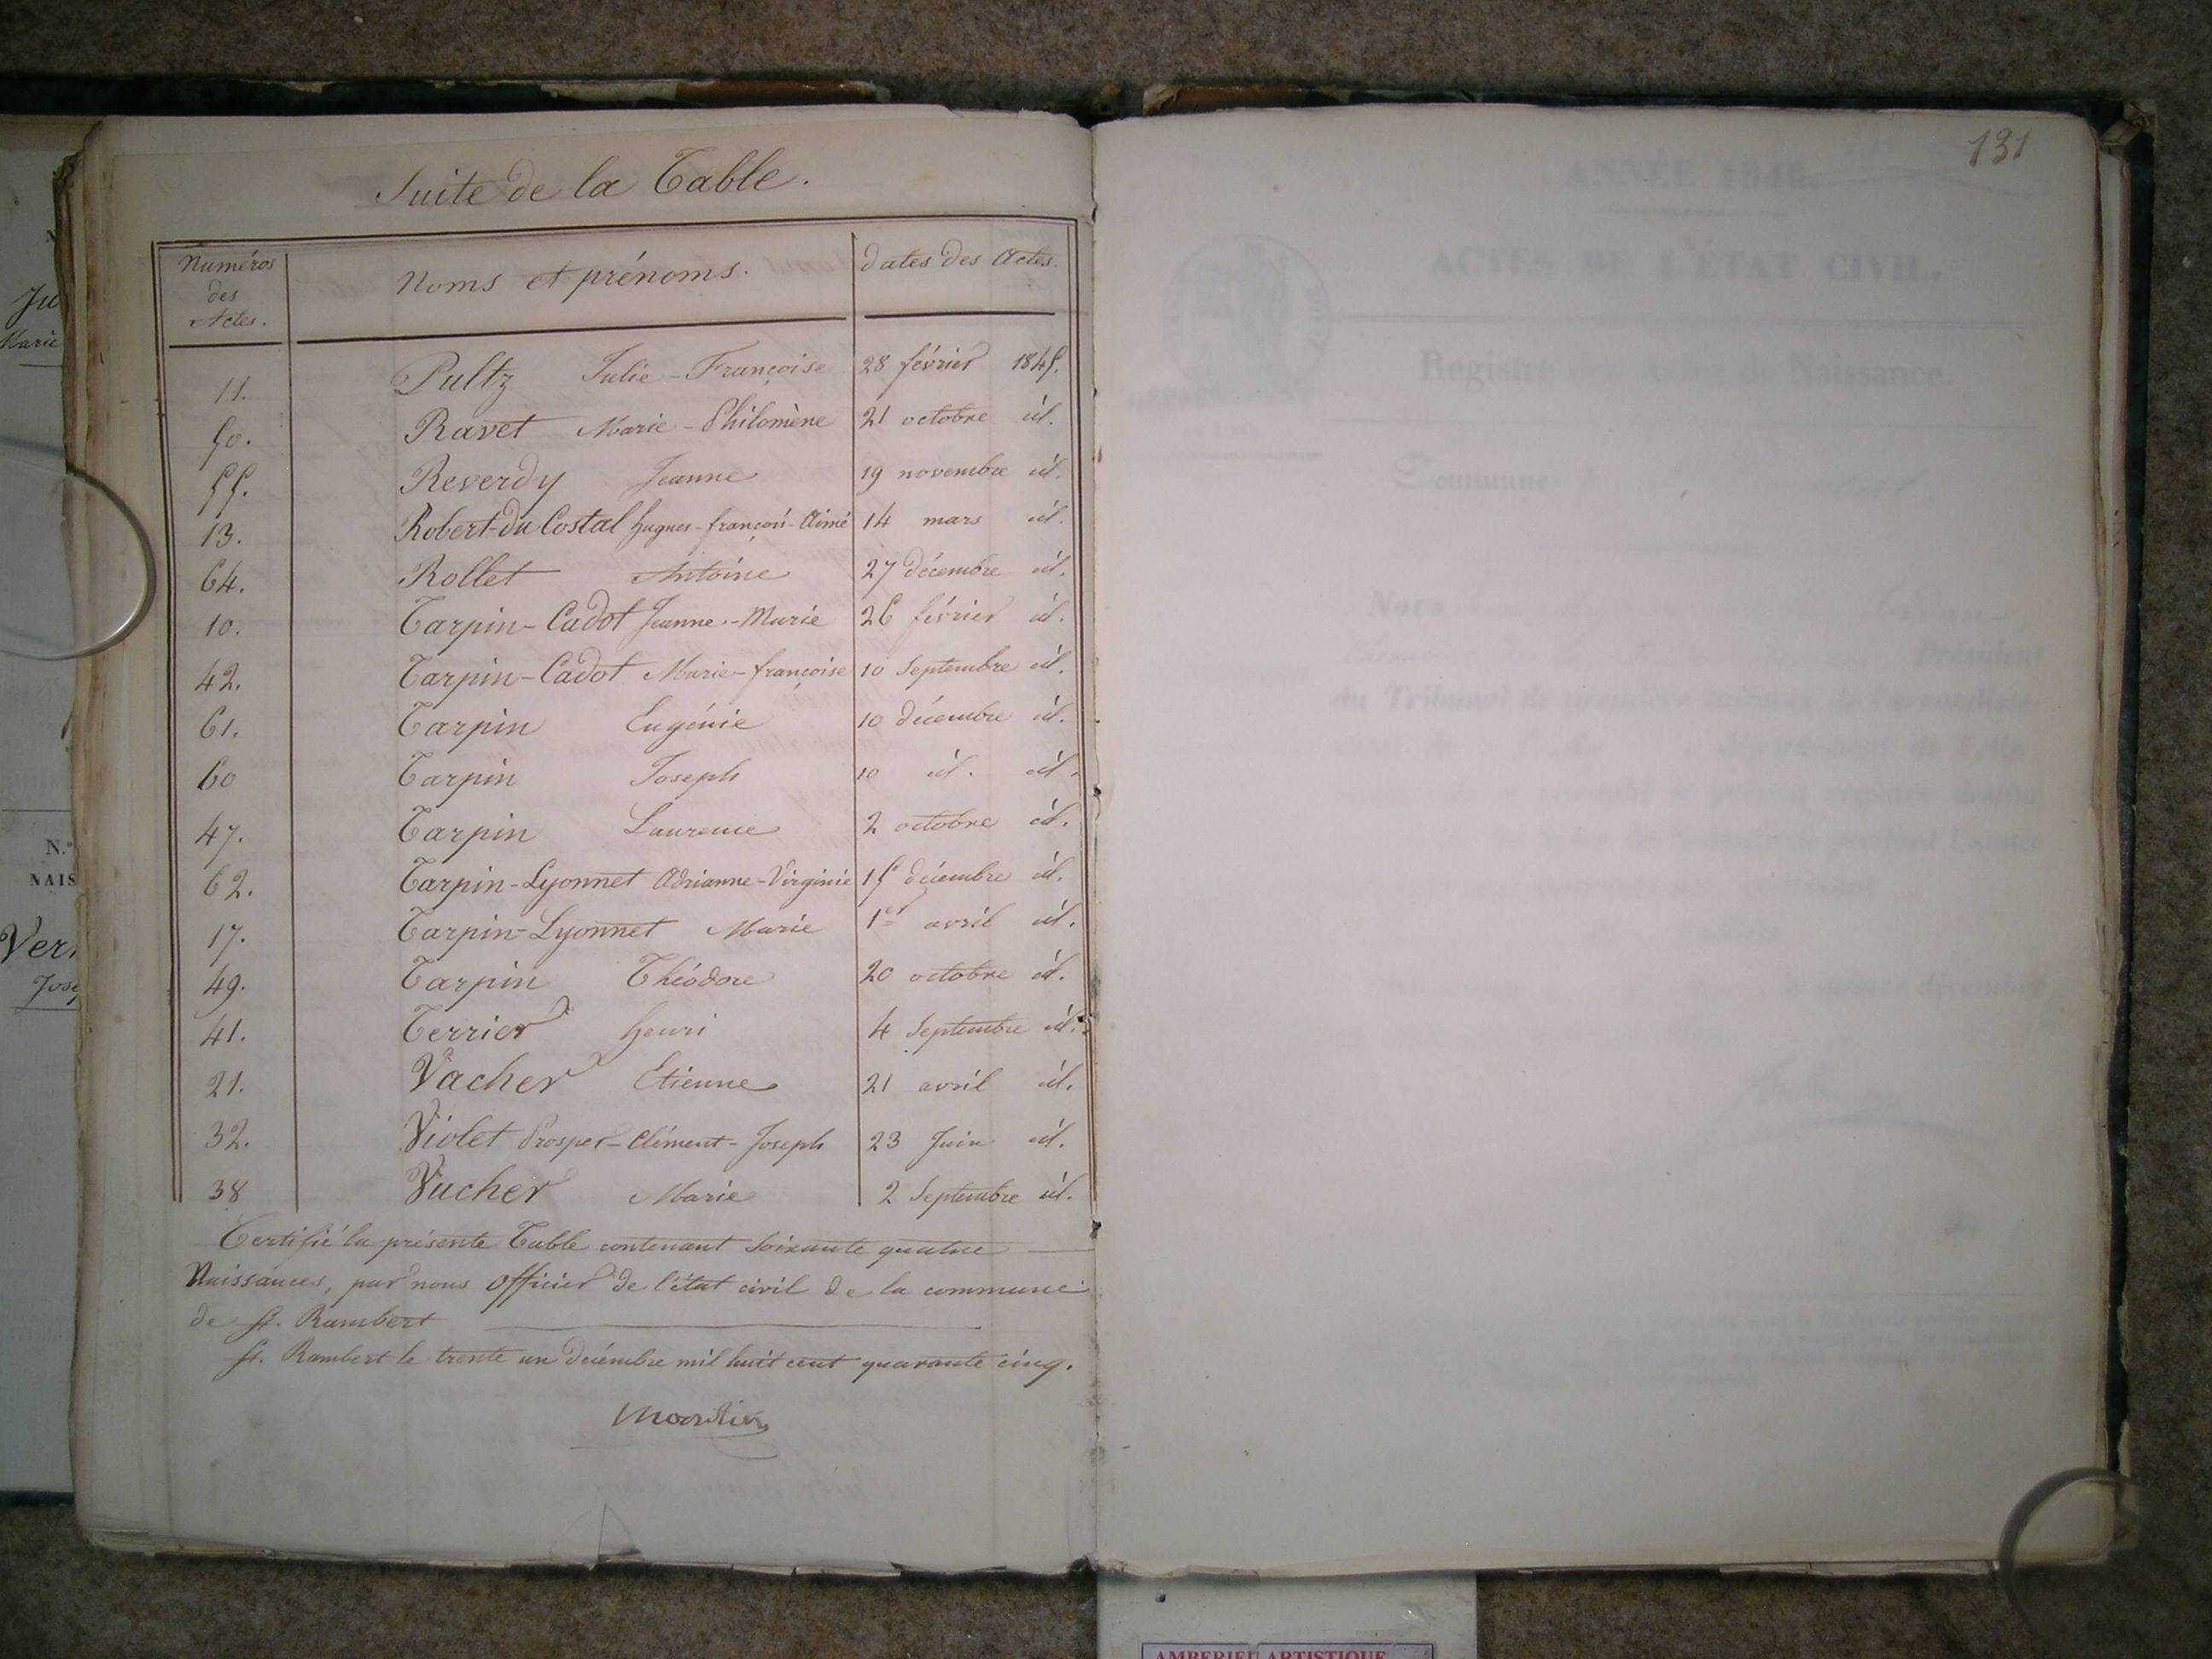 Suite de la Table.
Numéros des Actes. Noms et prénoms. dates des Actes.
11. Pultz Julie-Françoise 28 février 1845.
50. Ravet Marie-Philomène 21 octobre id.
55. Reverdy Jeanne 19 novembre id.
13. Robert-du Costal hugues-françois-Aimé 14 mars id.
64. Rollet Antoine 27 décembre id.
10. Tarpin-Cadot Jeanne-Marie 26 février id.
42. Tarpin-Cadot Marie-françoise 10 Septembre id.
61. Tarpin Eugénie 10 décembre id.
60 Tarpin Joseph 10 id. id.
47. Tarpin Laurence 2 octobre id.
62. Tarpin-Lyonnet Adrianne-Virginie 15 décembre id.
17. Tarpin-Lyonnet Marie 1er avril id.
49. Tarpin Théodore 20 octobre id.
41. Terrier henri 4 Septembre id.
21. Vacher Etienne 21 avril id.
32. Violet Prosper-Clément-Joseph 23 Juin id.
38 Vucher Marie 2 Septembre id.
Certifié la présente Table contenant Soixante quatre
Naissances, par nous Officier de l'état civil de la commune
de St. Rambert
St. Rambert le trente un décembre mil huit cent quarante cinq.
131
ANNÉE 1846.
ACTES DE L'ÉTAT CIVIL.
Registre des Actes de Naissance.
Commune
Nous
Président
du Tribunal de première instance de l'arrondisse-
Marie
N.°
NAIS
Ver
AMBERIEU ARTISTIQUE